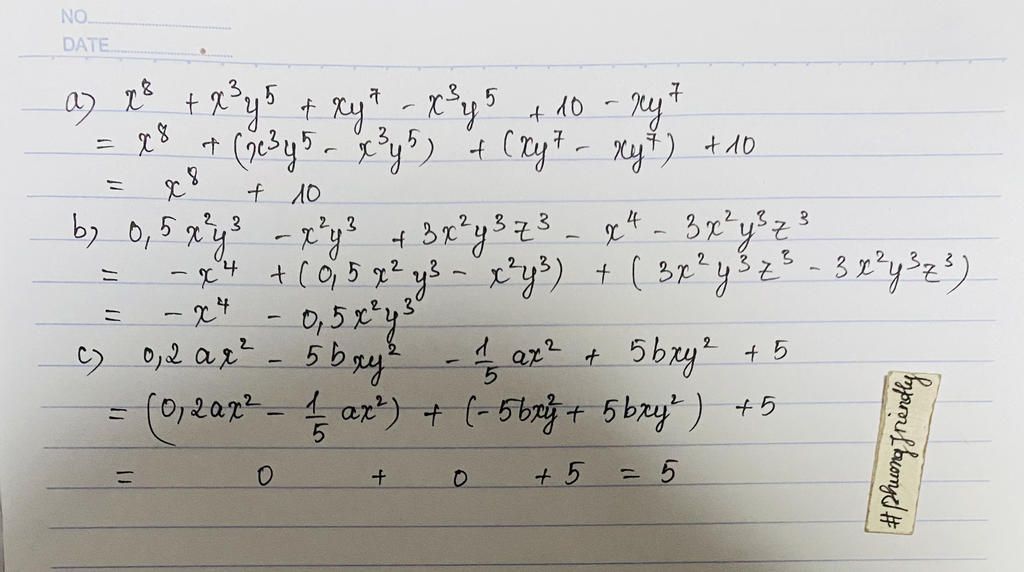 NO
DATE
a) x⁸ + x³y⁵ + xy⁷ - x³y⁵ + 10 - xy⁷
= x⁸ + (x³y⁵ - x³y⁵) + (xy⁷ - xy⁷) + 10
= x⁸ + 10
b) 0,5x²y³ - x²y³ + 3x²y³z³ - x⁴ - 3x²y³z³
= -x⁴ + (0,5x²y³ - x²y³) + (3x²y³z³ - 3x²y³z³)
= -x⁴ - 0,5x²y³
c) 0,2ax² - 5bxy² - 1/5 ax² + 5bxy² + 5
= (0,2ax² - 1/5 ax²) + (-5bxy² + 5bxy²) + 5
= 0 + 0 + 5 = 5